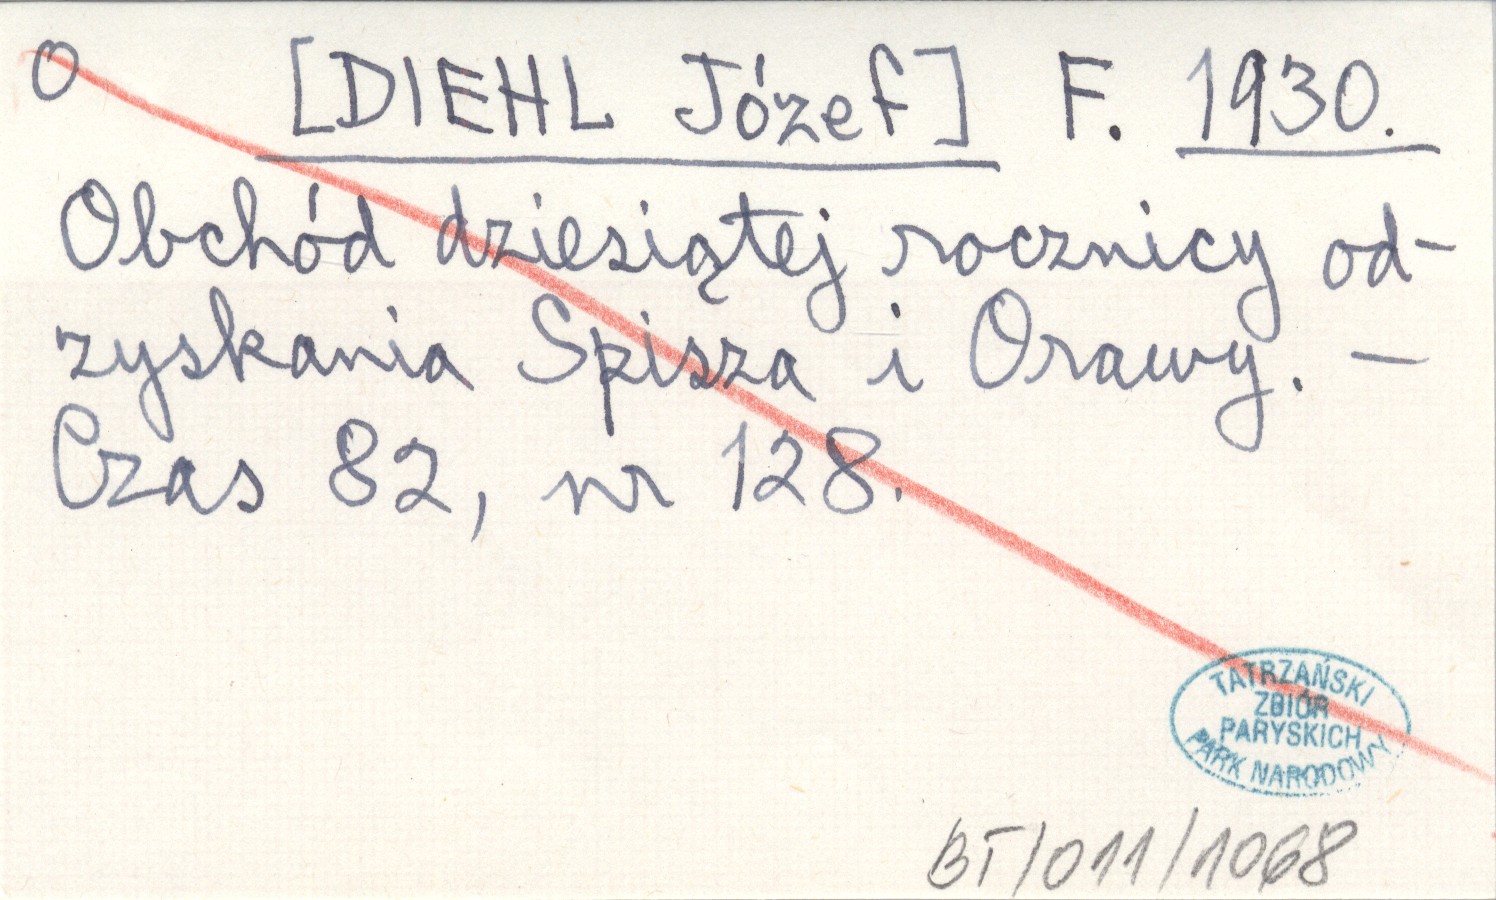 O [DIEHL Józef] F. 1930.
Obchód dziesiątej rocznicy od-
zyskania Spisza i Orawy. –
Czas 82, nr 128.
TATRZAŃSKI
ZBIÓR
PARYSKICH
PARK NARODOWY
BT/011/1068